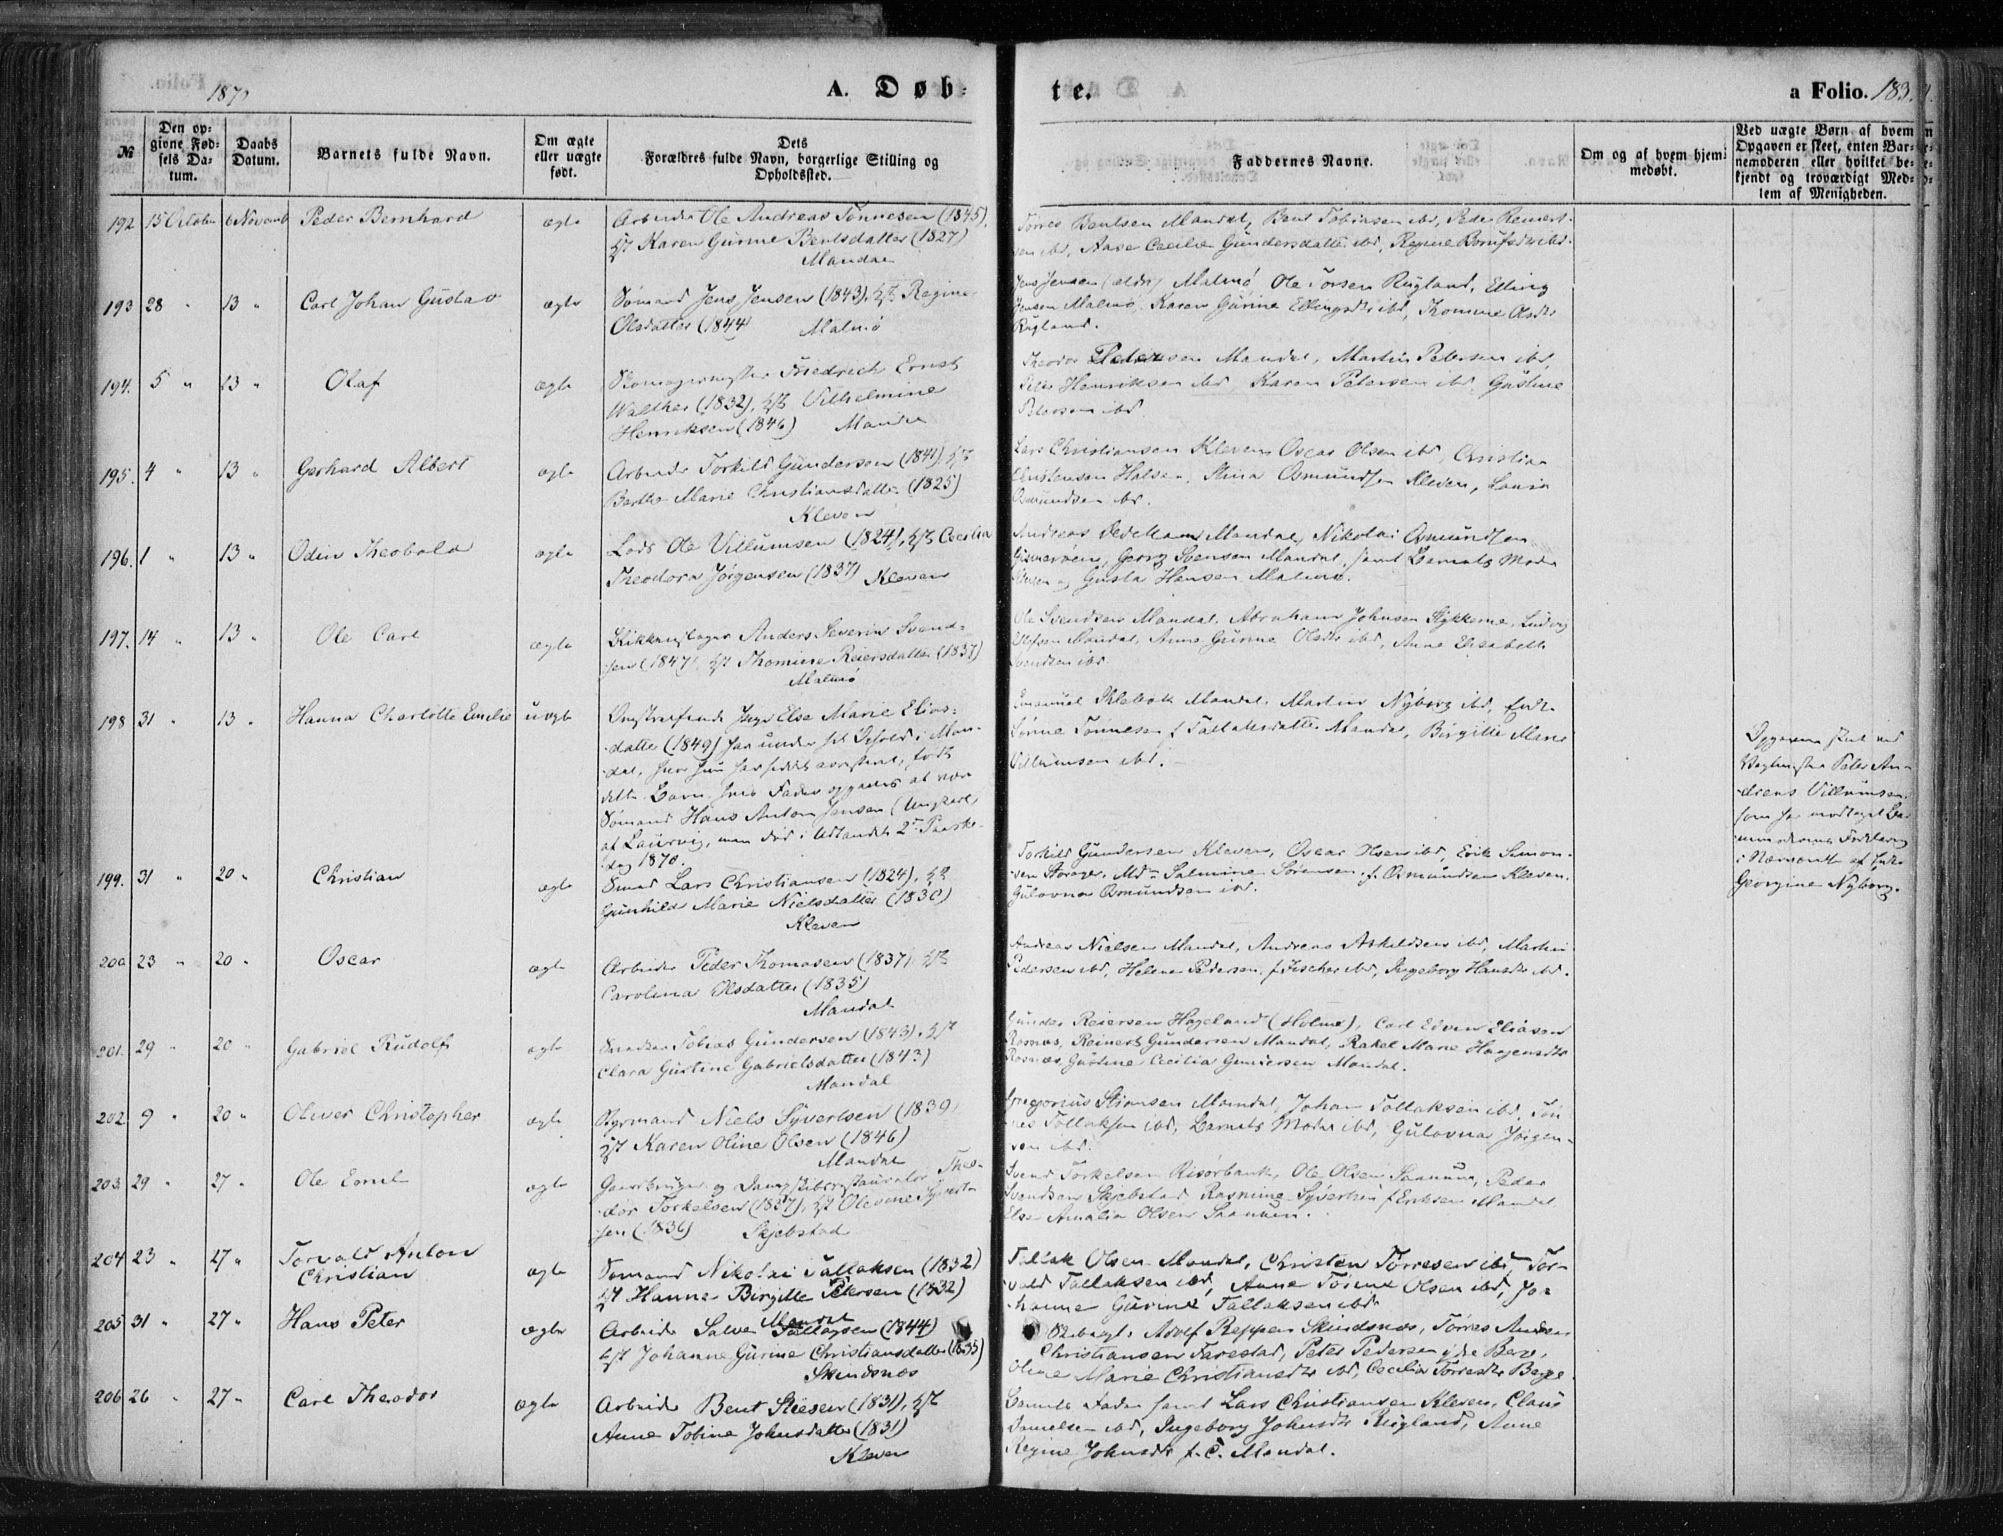 1870
A. Døb=
te.
a Folio. 183.
№
Den op=
givne Fød=
sels Da=
tum.
Daabs
Datum.
Barnets fulde Navn.
Om ægte
eller uægte
født.
Dets
Forældres fulde Navn, borgerlige Stilling og
Opholdssted.
Faddernes Navne.
Om og af hvem hjem=
medøbt.
Ved uægte Børn af hvem
Opgaven er skeet, enten Bar=
nemoderen eller hvilket be=
kjendt og troværdigt Med=
lem af Menigheden.
192 15 October 6 Novemb Peder Bernhard ægte Arbeider Ole Andreas Tönnesen (1845),
H/st Karen Gurine Bentsdatter (1827)
Mandal
Törres Bentsen Mandal, Bent Tobiasen ibd, Peder Reinert-
sen ibd, Aase Cecilie Gundersdatter ibd, Regine
193 28 " 13 " Carl Johan Gustav ægte Sömand Jens Jensen (1843), H/st Regine
Olsdatter (1844) Malmö
Jens Jensen (ældre) Malmö, Ole Torsen Rugland, Elling
Jensen Malmö, Karen Gurine Ellingsdtr ibd, Thomine Olsdtr
Rugland.
194. 5 " 13 " Olaf ægte Skomagermester Friedrich Ernst
Walther (1832), H/st Vilhelmine
Henriksen (1846) Mandal
Theodor Petersen Mandal, Martin Petersen ibd,
Peter Henriksen ibd, Karen Petersen ibd, Gustine
Petersen ibd.
195. 4 " 13 " Gerhard Albert ægte Arbeider Torkild Gundersen (1841), H/st
Berthe Marie Christiansdatter (1825)
Kleven
Lars Christiansen Kleven, Oscar Olsen ibd, Christian
Christensen Halsen, Stina Osmundsen Kleven, Lovise
Osmundsen ibd.
196. 1 " 13 " Odin Theobald ægte Lods Ole Villumsen (1824), H/st Cecilia
Theodora Jörgensen (1837) Kleven
Andreas Mandal, Nikolai Osmundsen
Georg Svensen Mandal, samt Barnets Moder
Gusta Hansen Malmö.
197. 14 " 13 " Ole Carl ægte Anders Severin Svend-
sen (1847), H/st Thomine Reiersdatter (1837)
Malmö
Ole Svendsen Mandal, Abraham Johnsen Stykkerne, Ludvig
Olsen Mandal, Anne Gurine Olsdtr ibd, Anne Elisabeth
Svendsen ibd.
198 31 " 13 " Hanna Charlotte Emelie uægte Omstreifende Pige Else Marie Elias-
datter (1849) har under sit Ophold i Man-
dal, hvor hun har siddet arresteret, födt
dette Barn, hvis Fader opgaves at være
Sömand Hans Anton Jensen (Ungkarl,
af Laurvig, men död i Udlandet 2den Paaske-
dag 1870.
Emanuel Mandal, Martin Nyborg ibd,
Tönnesen f Tallaksdatter Mandal, Birgitte Marie
Villumsen ibd.
Opgaven skeet ved
Vægtmester Peter An-
dreas Villumsen,
som har modtaget Bar-
nemoderens Forklaring
i Nærværelse af Jfr.
Georgine Nyborg.
199. 31 " 20 " Christian ægte Smed Lars Christiansen (1824), H/st
Gunhild Marie Nielsdatter (1830)
Kleven
Torkild Gundersen Kleven, Oscar Olsen ibd, Erik Simon-
sen Storøge, Mdm Salmine Sörensen, f. Osmundsen Kleven,
Gulovna Osmundsen ibd.
200. 23 " 20 " Oscar ægte Arbeider Peder Thomasen (1837), H/st
Carolina Olsdatter (1835)
Mandal
Andreas Nielsen Mandal, Andreas Askildsen ibd, Martin
Pedersen ibd, Helene Pedersen f. Fischer ibd, Ingeborg Hansdtr ibd.
201. 29 " 20 " Gabriel Rudolf ægte Snedker Tobias Gundersen (1843), H/st
Clara Gustine Gabrielsdatter (1843)
Mandal
Gunder Reiersen Hageland (Holme), Carl Edvin Eliasen
Rosnæs, Reinert Gundersen Mandal, Rakel Marie Haagensdtr
Rosnæs, Gustine Cecilia Gundersen Mandal.
202. 9 " 20 " Oliver Christopher ægte Styrmand Niels Syvertsen (1839)
H/st Karen Oline Olsen (1846)
Mandal
Gregorius Stiansen Mandal, Johan Tallaksen ibd, Tön-
nes Tallaksen ibd, Barnets Moder ibd, Gulovna Jörgen-
sen ibd.
203. 29 " 27 " Ole Emil ægte Gaardbruger og Dampskibsrestauratør Theo-
dor Torkelsen (1837), H/st Olevine Syvert-
sen (1836) Skjebstad
Svend Torkelsen Risörbank, Ole Olsen Saanum, Peder
Svendsen Skjebstad, Rasmine Syvertsen f Eriksen Mandal
Else Amalia Olsen Saanum.
204 23 " 27 " Torvald Anton
Christian ægte Sömand Nikolai Tallaksen (1832)
H/st Hanne Birgitte Petersen (1832)
Mandal
Tallak Olsen Mandal, Christen Törresen ibd, Tor-
vald Tallaksen ibd, Anne Torine Olsen ibd, Jo-
hanne Gurine Tallaksen ibd.
205 31 " 27 " Hans Peter ægte Arbeider Salve Tallaksen (1844)
H/st Johanne Gurine Christiansdatter (1835)
Skindsnæs
Adolf Reppen Skindsnæs, Törres Andreas
Christiansen Farestad, Peter Pedersen Berge,
Oline Marie Christiansdtr ibd, Cecilia Torresdtr Berge
206 26 " 27 " Carl Theodor ægte Arbeider Bent Stiesen (1831), H/st
Anne Tobine Johnsdatter (1831)
Kleven
Barnets Fader samt Lars Christiansen Kleven, Claus
Danielsen ibd, Ingeborg Johnsdtr Rugland, Anne
Regine Johnsdtr f. T. Mandal.